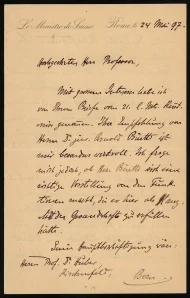 Le Ministre de Suisse Rome, 24 Mai 97.
Hochgeehrter Herr Professor,
Mit grossem Interesse habe ich
von Ihrem Briefe vom 21. l. Mts.
genommen. Ihre Empfehlung von
Herrn Dr. jur. Arnold
mir besonders wertvoll. Ich frage
mich jedoch, ob Herr sich eine
richtige Vorstellung von den Funk-
tionen macht, die er hier als
der Gesandtschaft zu erfüllen
hätte.
Seine Hauptbeschäftigung wäre:
Herrn Prof. Dr. Huber
Kirchenfeld, Bern